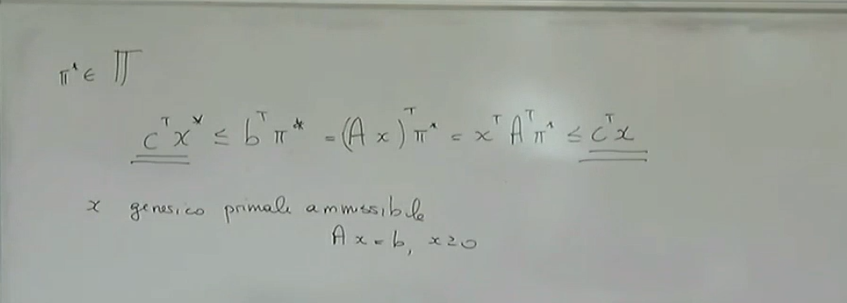 π* ∈ Π
cᵀx* ≤ bᵀπ* = (Ax)ᵀπ* = xᵀAᵀπ* ≤ cᵀx
x generico primale ammissibile
Ax = b, x ≥ 0